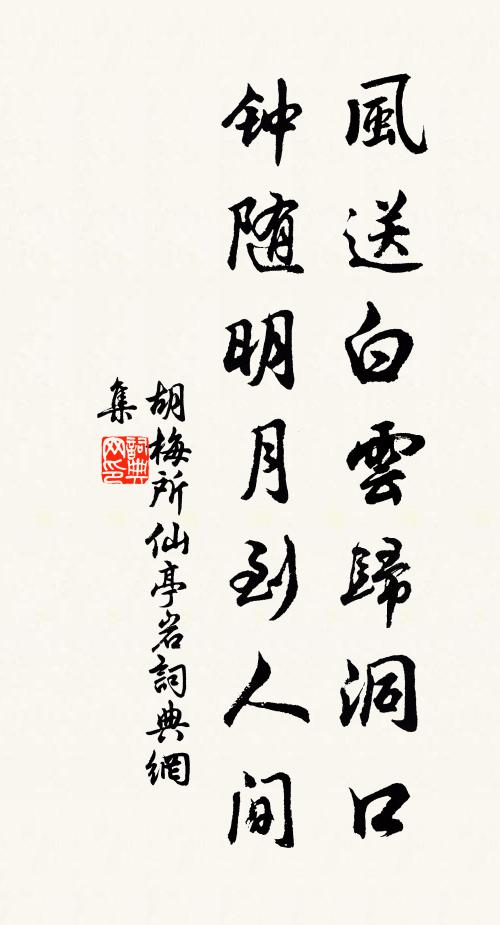 風送白雲歸洞口
钟随明月到人间
胡梅所仙亭岩詞典網
集
詞典
网印